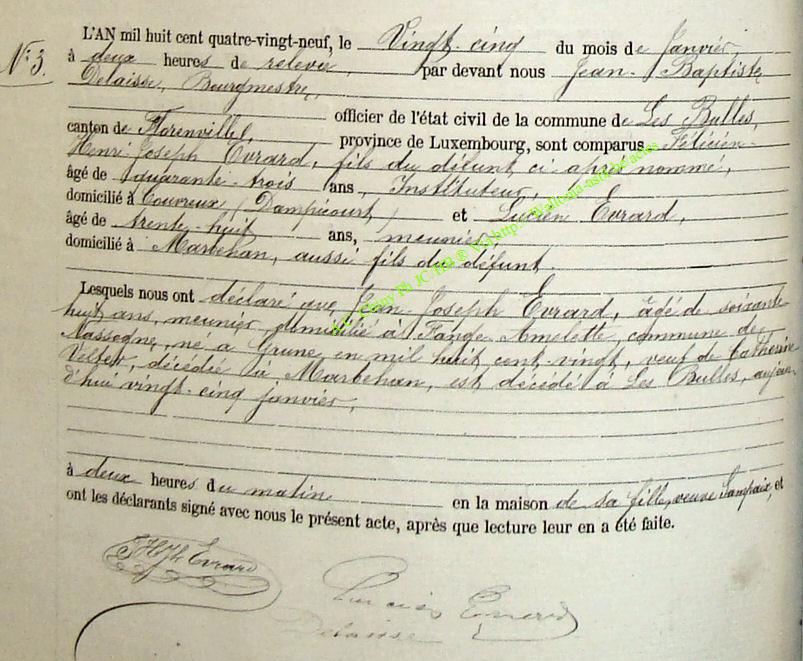 N° 3.
L'AN mil huit cent quatre-vingt-neuf, le Vingt-cinq du mois de Janvier,
à deux heures de relevée, par devant nous Jean-Baptiste
Delaisse, Bourgmestre,
officier de l'état civil de la commune de Les Bulles,
canton de Florenville, province de Luxembourg, sont comparus Félicien-
Henri-Joseph Evrard, fils du défunt ci-après nommé,
âgé de quarante-trois ans, Instituteur,
domicilié à Couvreux (Dampicourt) et Lucien Evrard,
âgé de trente-huit ans, meunier,
domicilié à Marbehan, aussi fils du défunt
Lesquels nous ont déclaré que Jean Joseph Evrard, âgé de soixante
huit ans, meunier, domicilié à Fange Amelette, commune de
Nassogne, né à Grune en mil huit cent-vingt, veuf de Catherine
Velter, décédée à Marbehan, est décédé à Les Bulles, aujour-
d'hui vingt-cinq janvier,
à deux heures du matin en la maison de sa fille, veuve Lampaix, et
ont les déclarants signé avec nous le présent acte, après que lecture leur en a été faite.
F H Jh Evrard
Lucien Evrard
Delaisse